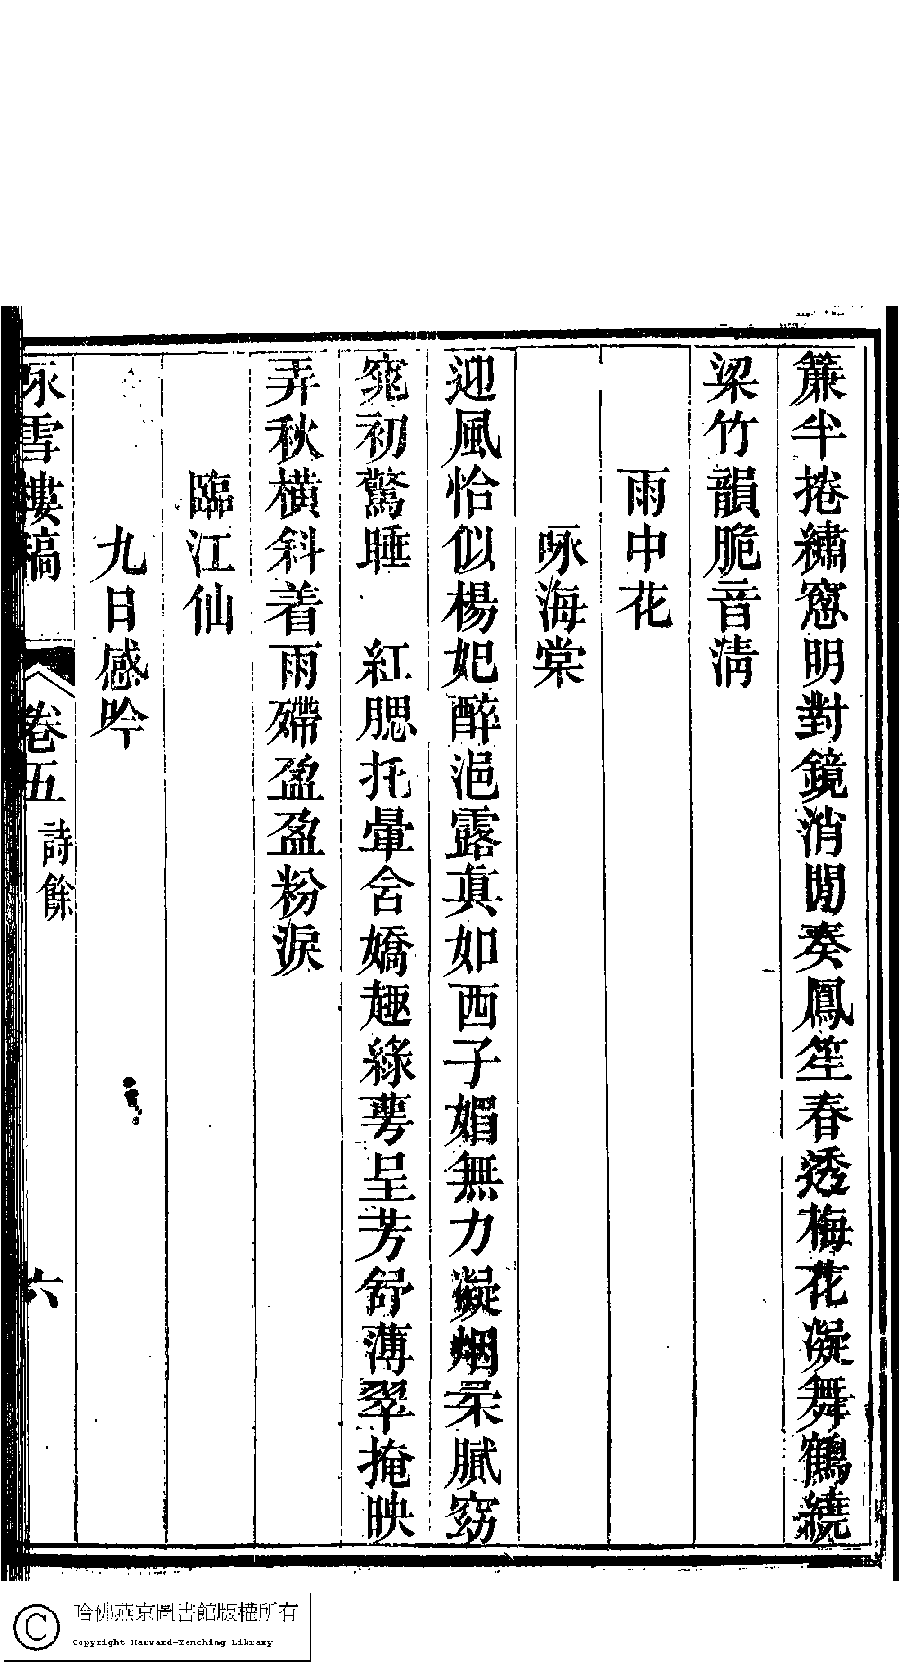 簾半捲繡窻明對鏡消閒奏鳳笙春透梅花凝舞鶴繞
梁竹韻脆音淸
雨中花
咏海棠
迎風恰似楊妃醉浥露眞如西子媚無力凝烟柔膩窈
窕初驚睡　紅腮托暈含嬌趣綠萼呈芳舒薄翠掩映
弄秋橫斜着雨殢盈盈粉淚
臨江仙
九日感吟
咏雪樓稿　卷五　詩餘　六
哈佛燕京圖書館版權所有
Copyright Harvard-Yenching Library